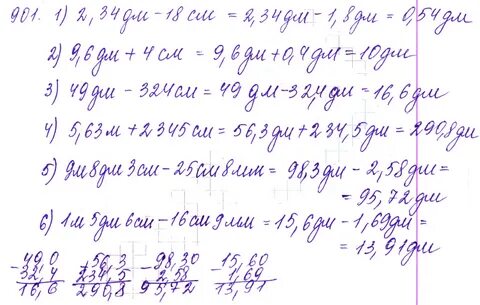 901. 1) 2,34дм - 18 см = 2,34дм - 1,8дм = 0,54дм
2) 9,6дм + 4 см = 9,6дм + 0,4дм = 10дм
3) 49дм - 324см = 49 дм - 32,4дм = 16,6дм
4) 5,63м + 2345см = 56,3дм + 234,5дм = 290,8дм
5) 9м 8дм 3см - 25см 8мм = 98,3дм - 2,58дм =
= 95,72дм
6) 1м 5дм 6см - 16см 9мм = 15,6дм - 1,69дм =
= 13,91дм
- 49,0 + 56,3 - 98,30 - 15,60
32,4 234,5 2,58 1,69
16,6 290,8 95,72 13,91